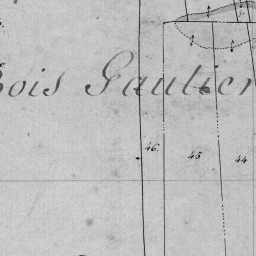 Bois Gautier
46. 45 44